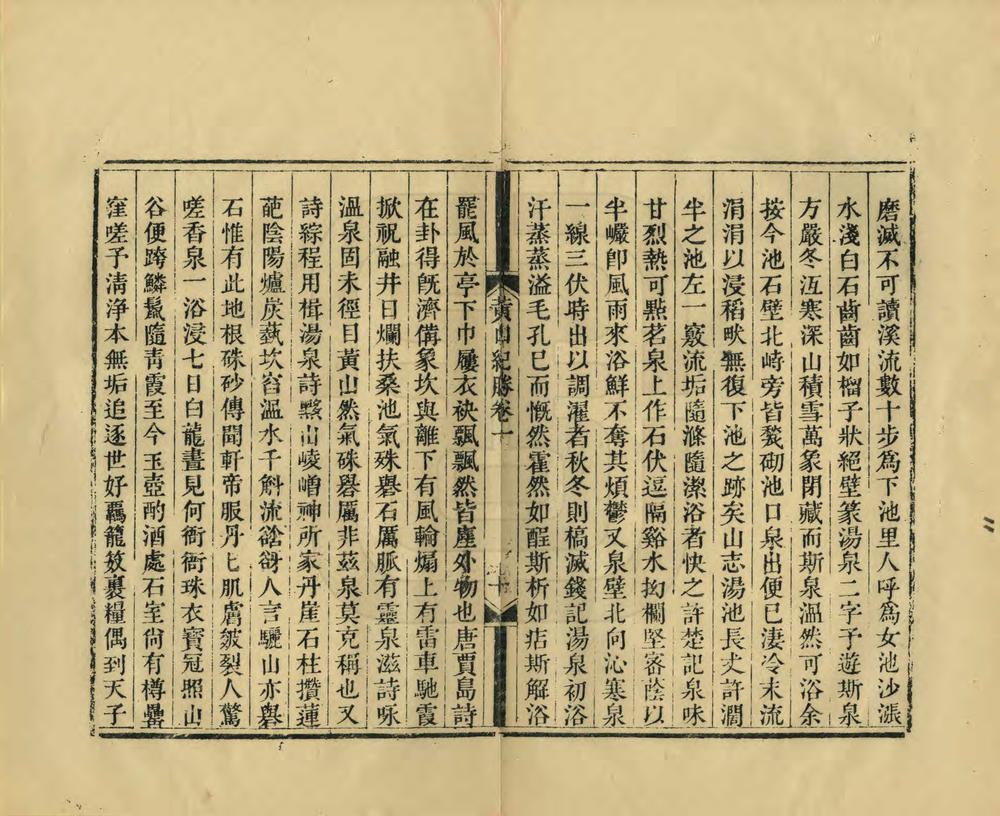 磨滅不可讀溪流數十步爲下池里人呼爲女池沙漲
水淺白石齒齒如榴子狀絕壁篆湯泉二字予遊斯泉
方嚴冬沍寒深山積雪萬象閉藏而斯泉溫然可浴余
按今池石壁北峙旁皆甃砌池口泉出便已淒冷末流
涓涓以浸稻畎無復下池之跡矣山志湯池長丈許濶
半之池左一竅流垢隨滌隨潔浴者快之許楚記泉味
甘烈熱可點茗泉上作石伏逗隔谿水拗欄堅審蔭以
半巖卽風雨來浴鮮不奪其煩鬱又泉壁北向沁寒泉
一線三伏時出以調濯者秋冬則槁滅錢記湯泉初浴
汗蒸蒸溢毛孔已而慨然霍然如酲斯析如痁斯解浴
黃山紀勝卷一
罷風於亭下巾屨衣袂飄飄然皆塵外物也唐賈島詩
在卦得旣濟備象坎與離下有風輪煽上有雷車馳霞
掀祝融井日爛扶桑池氣殊礜石厲脈有靈泉滋詩咏
溫泉固未徑目黃山然氣硃礜厲非茲泉莫克稱也又
詩綜程用楫湯泉詩黟山崚嶒神所家丹崖石柱攢蓮
葩陰陽爐炭蓺坎窞溫水千斛流谽谺人言驪山亦礜
石惟有此地根硃砂傳聞軒帝服丹匕肌膚皴裂人驚
嗟香泉一浴浸七日白龍晝見何衙衙珠衣寶冠照山
谷便跨鱗鬣隨靑霞至今玉壺酌酒處石室尙有樽罍
窪嗟予淸淨本無垢追逐世好羈籠笯裹糧偶到天子